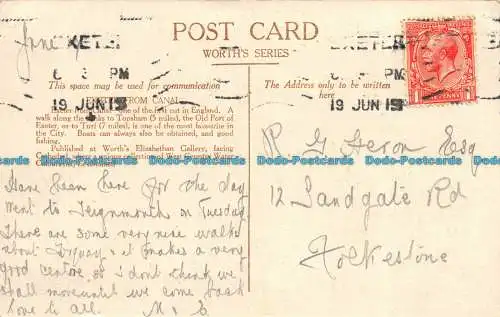 POST CARD
WORTH'S SERIES
June
EXETER
6 PM
19 JUN 15
EXETER
PM
19 JUN 15
This space may be used for communication
The Address only to be written
here
FROM CANAL.
one of the first cut in England. A
walk along the banks to Topsham (5 miles), the Old Port of
Exeter, or to Turf (7 miles), is one of the most beautiful in
the City. Boats can always also be obtained, and good
fishing.
Published at Worth's Elizabethan Gallery, facing
Cathedral, where a unique collection of West Country Water
Have been here for the day
went to Teignmouth on Tuesday
There are some very nice walks
about Torquay & it makes a very
good centre, so i dont think we
shall move until we come back
love to all. M. E
R G Esq
12 Sandgate Rd
Folkestone
Dodo-Postcards Dodo-Postcards Dodo-Postcards Dodo-Postcards Dodo-Postcards